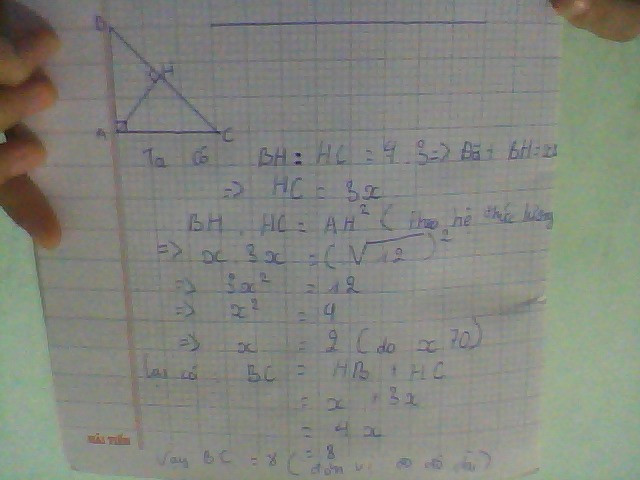 B
H
A C
Ta có BH : HC = 1 : 3 => Đặt BH = x
=> HC = 3x
BH . HC = AH² ( theo hệ thức lượng
=> x . 3x = (√12)²
=> 3x² = 12
=> x² = 4
=> x = 2 (do x > 0)
Lại có BC = HB + HC
= x + 3x
= 4x
= 8
HẢI TIẾN
Vậy BC = 8 ( đơn vị đo độ dài )